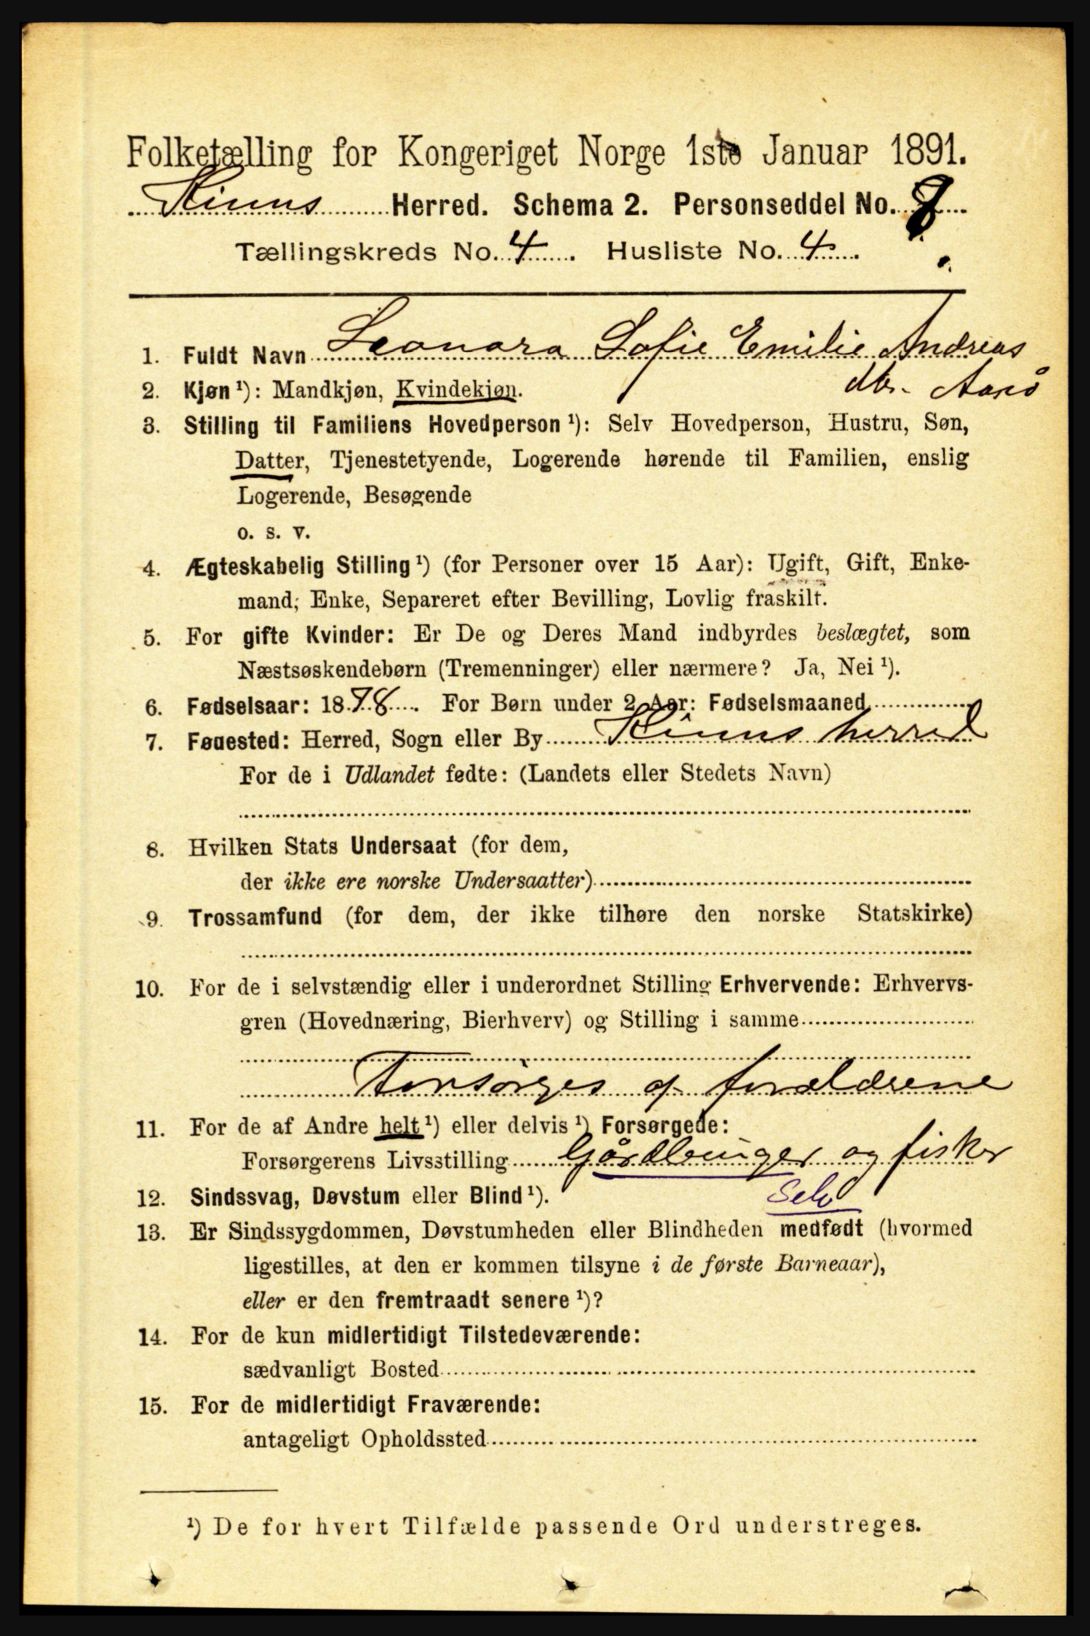 Folketælling for Kongeriget Norge 1ste Januar 1891.
Kinns Herred. Schema 2. Personseddel No. 8
Tællingskreds No. 4. Husliste No. 4.
1. Fuldt Navn Leonora Sofie Emilie Andreas
dtr. Aarø
2. Kjøn ¹): Mandkjøn, Kvindekjøn.
3. Stilling til Familiens Hovedperson ¹): Selv Hovedperson, Hustru, Søn,
Datter, Tjenestetyende, Logerende hørende til Familien, enslig
Logerende, Besøgende
o. s. v.
4. Ægteskabelig Stilling ¹) (for Personer over 15 Aar): Ugift, Gift, Enke-
mand, Enke, Separeret efter Bevilling, Lovlig fraskilt.
5. For gifte Kvinder: Er De og Deres Mand indbyrdes beslægtet, som
Næstsøskendebørn (Tremenninger) eller nærmere? Ja, Nei ¹).
6. Fødselsaar: 1878. For Børn under 2 Aar: Fødselsmaaned
7. Fødested: Herred, Sogn eller By Kinns herred
For de i Udlandet fødte: (Landets eller Stedets Navn)
8. Hvilken Stats Undersaat (for dem,
der ikke ere norske Undersaatter)
9. Trossamfund (for dem, der ikke tilhøre den norske Statskirke)
10. For de i selvstændig eller i underordnet Stilling Erhvervende: Erhvervs-
gren (Hovednæring, Bierhverv) og Stilling i samme
Forsørges af forældrene
11. For de af Andre helt ¹) eller delvis ¹) Forsørgede:
Forsørgerens Livsstilling Gårdbruger og fisker
Selv
12. Sindssvag, Døvstum eller Blind ¹).
13. Er Sindssygdommen, Døvstumheden eller Blindheden medfødt (hvormed
ligestilles, at den er kommen tilsyne i de første Barneaar),
eller er den fremtraadt senere ¹)?
14. For de kun midlertidigt Tilstedeværende:
sædvanligt Bosted
15. For de midlertidigt Fraværende:
antageligt Opholdssted
¹) De for hvert Tilfælde passende Ord understreges.